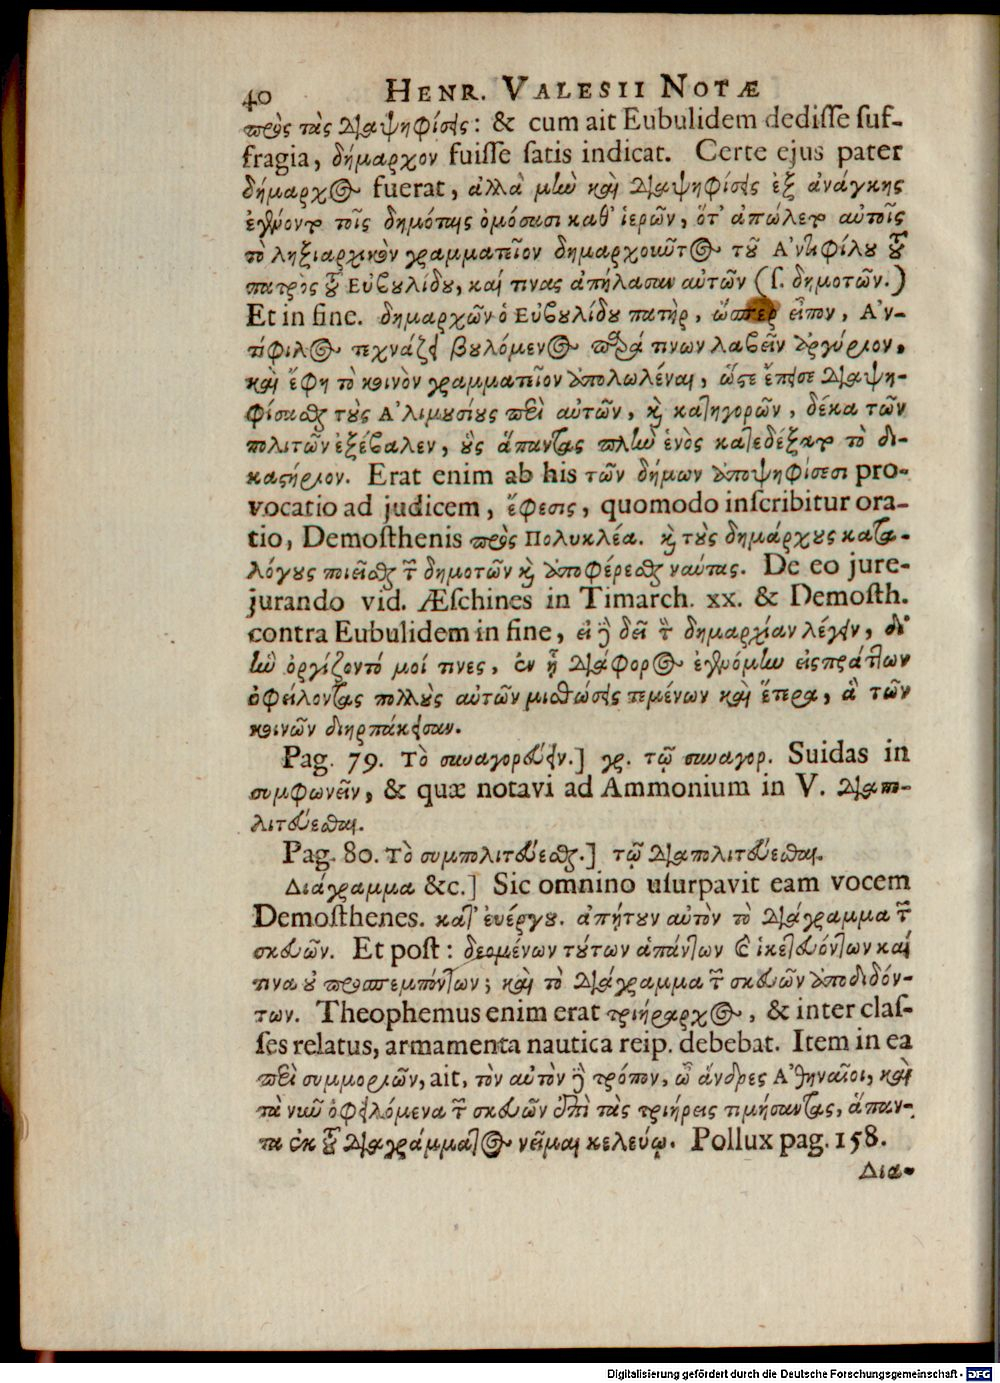 40 HENR. VALESII NOTÆ
πρὸς τὰς διαψηφίσεις: & cum ait Eubulidem dedisse suf-
fragia, δήμαρχον fuisse satis indicat. Certe ejus pater
δήμαρχος fuerat, ἀλλὰ μὴν καὶ διαψήφισις ἐξ ἀνάγκης
ἐγένετο τοῖς δημόταις ὀμόσασι καθ' ἱερῶν, ὅτ' ἀπώλετο αὐτοῖς
τὸ ληξιαρχικὸν γραμματεῖον δημαρχοῦντος τοῦ Ἀντιφίλου τοῦ
πατρὸς τοῦ Εὐβουλίδου, καί τινας ἀπήλασαν αὐτῶν (ſ. δημοτῶν.)
Et in fine. δημαρχῶν ὁ Εὐβουλίδου πατὴρ, ὥσπερ εἶπον, Ἀν-
τίφιλος τεχνάζει βουλόμενος παρά τινων λαβεῖν ἀργύριον,
καὶ ἔφη τὸ κοινὸν γραμματεῖον ἀπολωλέναι, ὥστε ἔπεισε διαψη-
φίσασθαι τοὺς Ἀλιμουσίους περὶ αὐτῶν, καὶ κατηγορῶν, δέκα τῶν
πολιτῶν ἐξέβαλεν, οὓς ἅπαντας πλὴν ἑνὸς κατεδέξατο τὸ δι-
καστήριον. Erat enim ab his τῶν δήμων ἀποψηφίσεσι pro-
vocatio ad judicem, ἔφεσις, quomodo inscribitur ora-
tio, Demosthenis πρὸς Πολυκλέα. καὶ τοὺς δημάρχους κατα-
λόγους ποιεῖσθαι τῶν δημοτῶν καὶ ἀποφέρεσθαι ναύτας. De eo jure-
jurando vid. Æschines in Timarch. xx. & Demosth.
contra Eubulidem in fine, εἰ δὲ δεῖ τὴν δημαρχίαν λέγειν, δι'
ἣν ὀργίζοντό μοί τινες, ἐν ᾗ διάφορος ἐγενόμην εἰσπράττων
ὀφείλοντας πολλοὺς αὐτῶν μισθώσεις τεμένων καὶ ἕτερα, ἃ τῶν
κοινῶν διηρπάκεισαν.
Pag. 79. Τὸ συναγορεύειν.] γρ. τῷ συναγορ. Suidas in
συμφωνεῖν, & quæ notavi ad Ammonium in V. διαπο-
λιτεύεσθαι.
Pag. 80. Τὸ συμπολιτεύεσθαι.] τῷ διαπολιτεύεσθαι.
Διάγραμμα &c.] Sic omnino usurpavit eam vocem
Demosthenes. κατ' ἐυέργου. ἀπῄτουν αὐτὸν τὸ διάγραμμα τῶν
σκευῶν. Et post: δεομένων τούτων ἁπάντων καὶ ἱκετευόντων καί
τινα οὐ προσπεμπόντων; καὶ τὸ διάγραμμα τῶν σκευῶν ἀποδιδόν-
των. Theophemus enim erat τριήραρχος, & inter clas-
ses relatus, armamenta nautica reip. debebat. Item in ea
περὶ συμμοριῶν, ait, τὸν αὐτὸν δὲ τρόπον, ὦ ἄνδρες Ἀθηναῖοι, καὶ
τὰ νῦν ὀφειλόμενα τῶν σκευῶν ἐπὶ τὰς τριήρεις τιμήσαντας, ἅπαν-
τα ἐκ τοῦ διαγράμματος νεῖμαι κελεύω. Pollux pag. 158.
Δια-
Digitalisierung gefördert durch die Deutsche Forschungsgemeinschaft - DFG